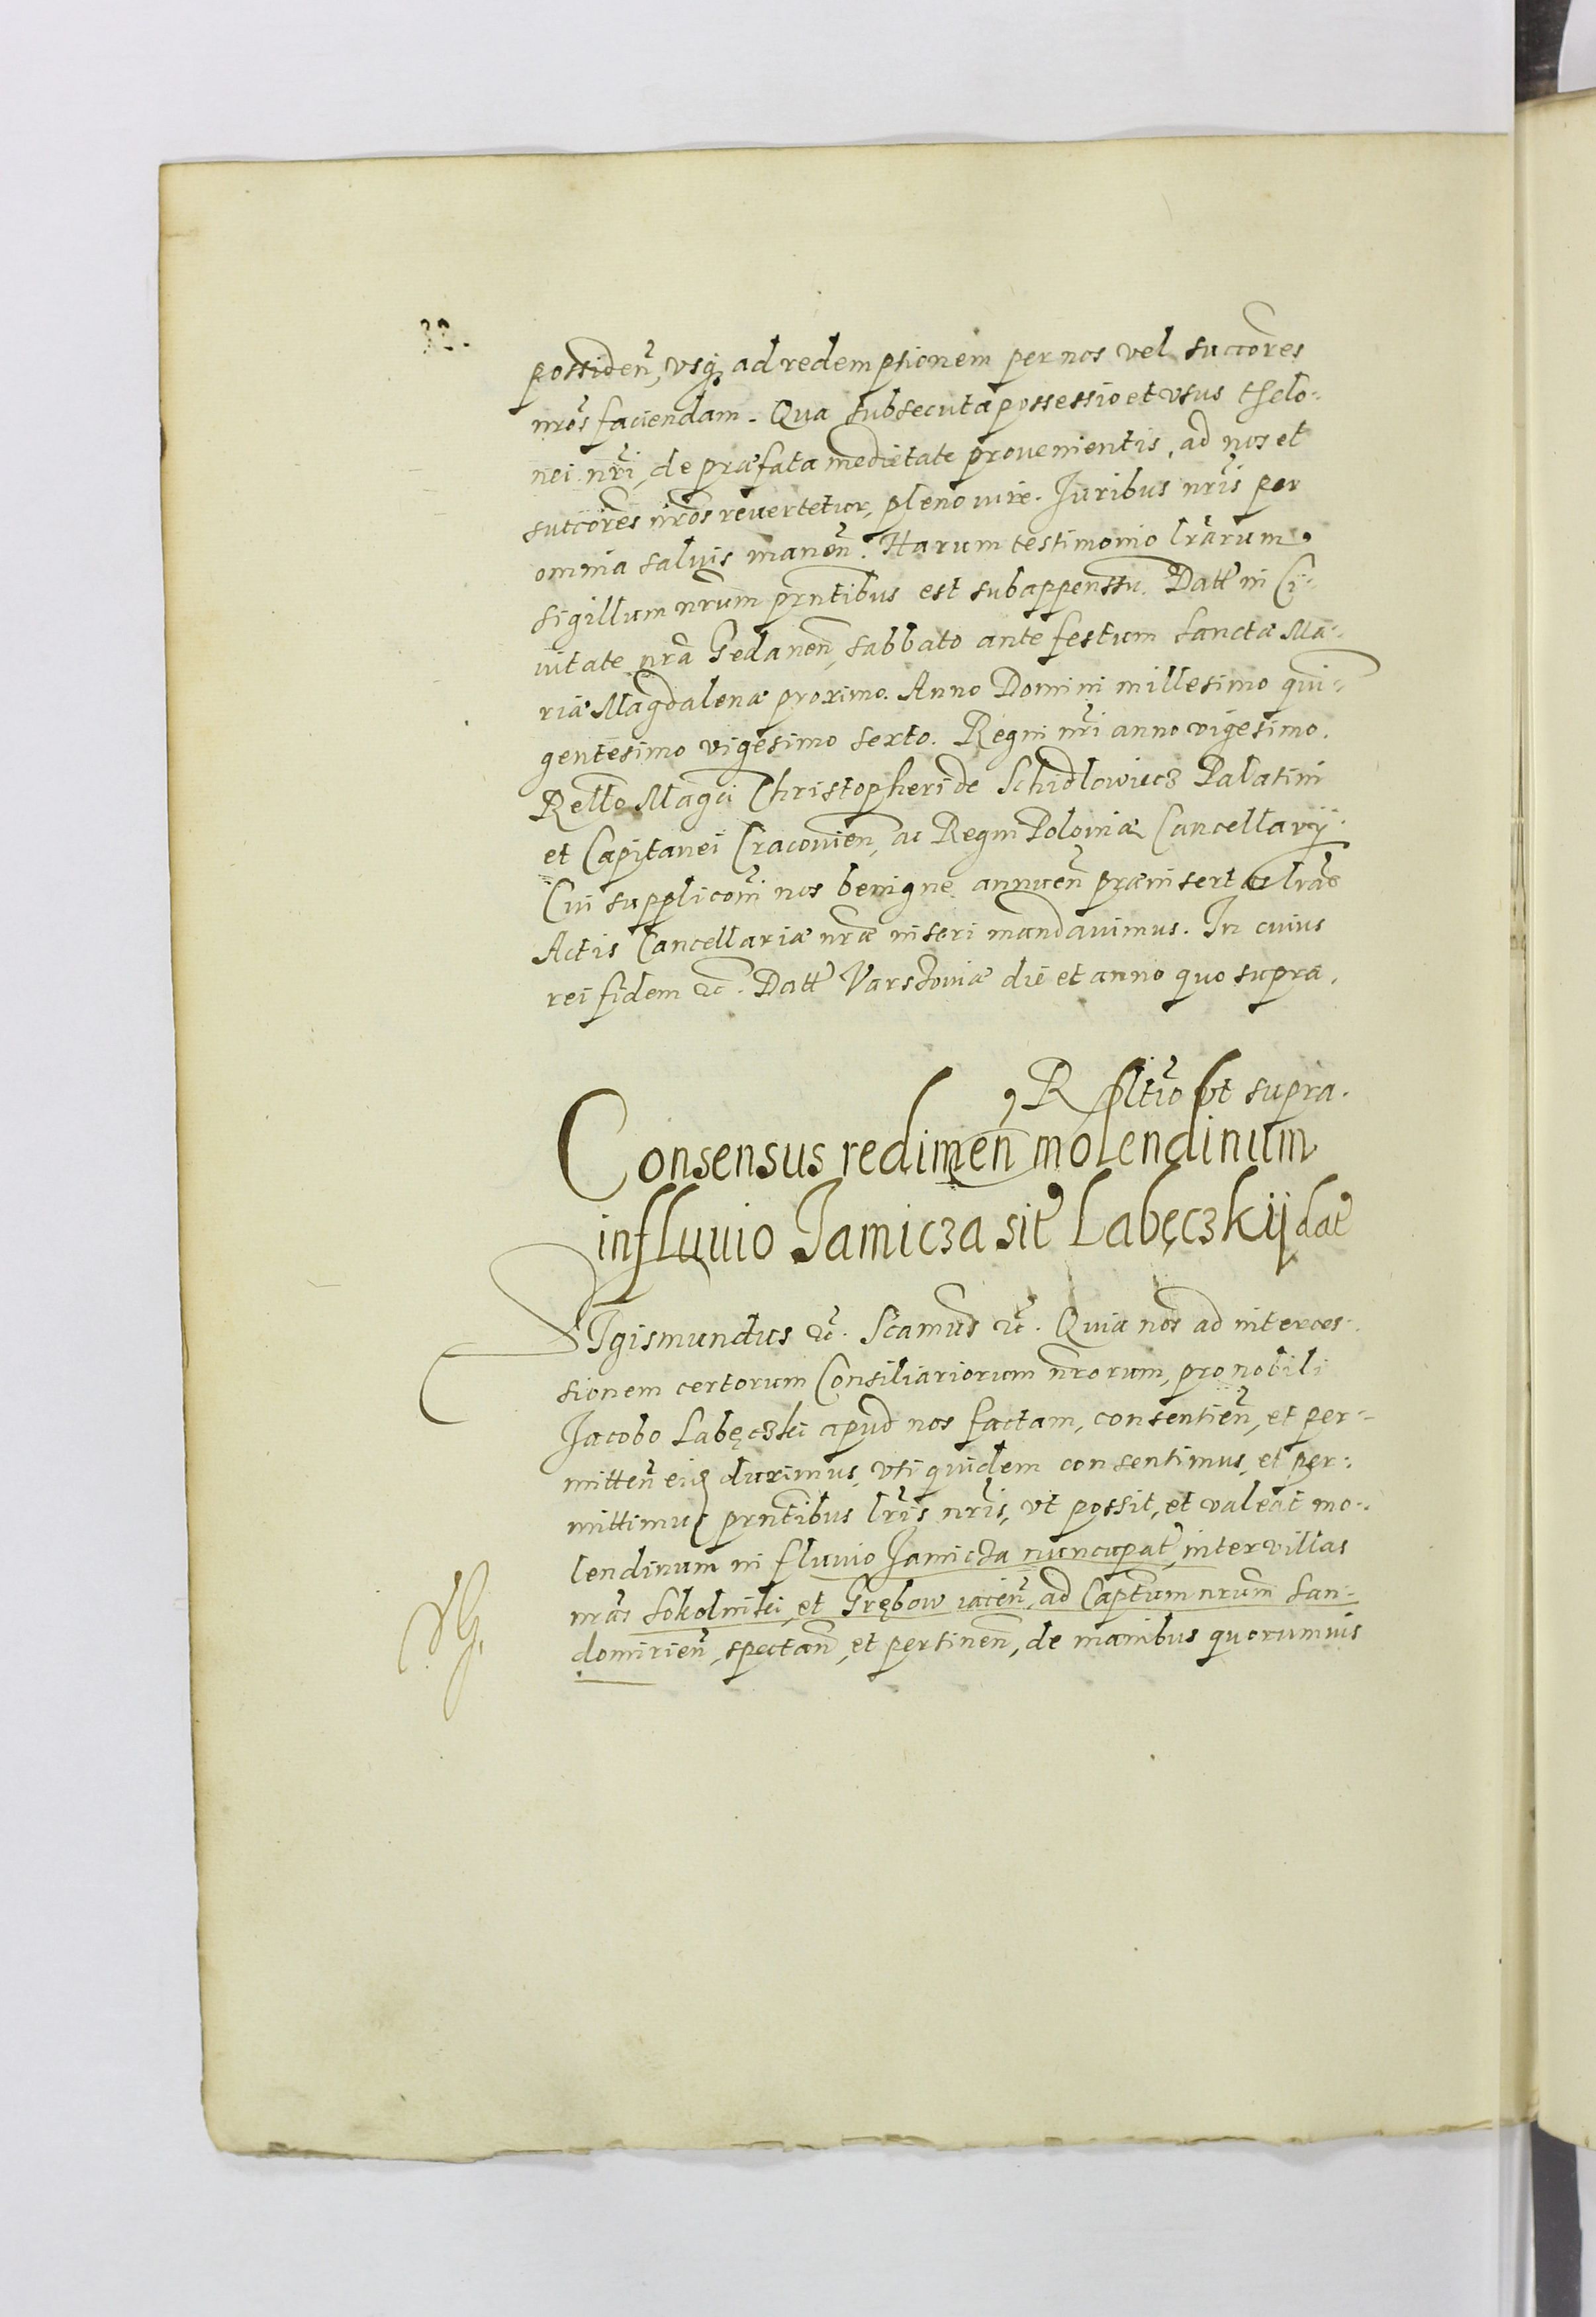 32.
possiden̄, vsq̨ ad redemptionem per nos vel succ̄ores
nr̄os faciendam. Qua subsecuta possessio et vsus thelo-
nei nr̄i, de præfata medietate prouenientis, ad nos et
succ̄ores nr̄os reuertetur, pleno iure. Juribus nr̄is per
omnia saluis manen̄. Harum testimonio lr̄arum,
sigillum nr̄um prn̄tibus est subappensū. Datt̄ in Ci-
uitate nr̄a Gedanen̄, sabbato ante festum sanctæ Ma-
riæ Magdalenæ proximo. Anno Domini millesimo quin-
gentesimo vigesimo sexto. Regni nr̄i anno vigesimo.
Rello Mag̃ci Christopheri de Schidlowiecz Palatini
et Capitanei Cracouien̄, ac Regni Poloniæ Cancellarij.
Cui supplicōni nos benigne annuen̄ præinsertas lr̄as
Actis Cancellariæ nr̄æ inseri mandauimus. In cuius
rei fidem &c̄. Datt̄ Varszouiæ die et anno quo supra.
R ut supra.
Consensus redimen̄ molendinum
in fluuio Jamicza sit̄ Labęczkij dat̄
SIgismundus &c̄. Sc̄amus &c̄. Quia nos ad interces-
sionem certorum Consiliariorum nr̄orum, pro nobili
Jacobo Labęczki apud nos factam, consentien̄, et per-
mitten̄ eiq̨ duximus, vti quidem consentimus, et per-
mittimus prn̄tibus lr̄is nr̄is, vt possit, et valeat mo-
lendinum in fluuio Jamicza nuncupat̄, inter villas
nr̄as Sokolniki, et Grębow iacen̄, ad Capt̄um nr̄um San-
domirien̄, spectan̄, et pertinen̄, de manibus quorumuis